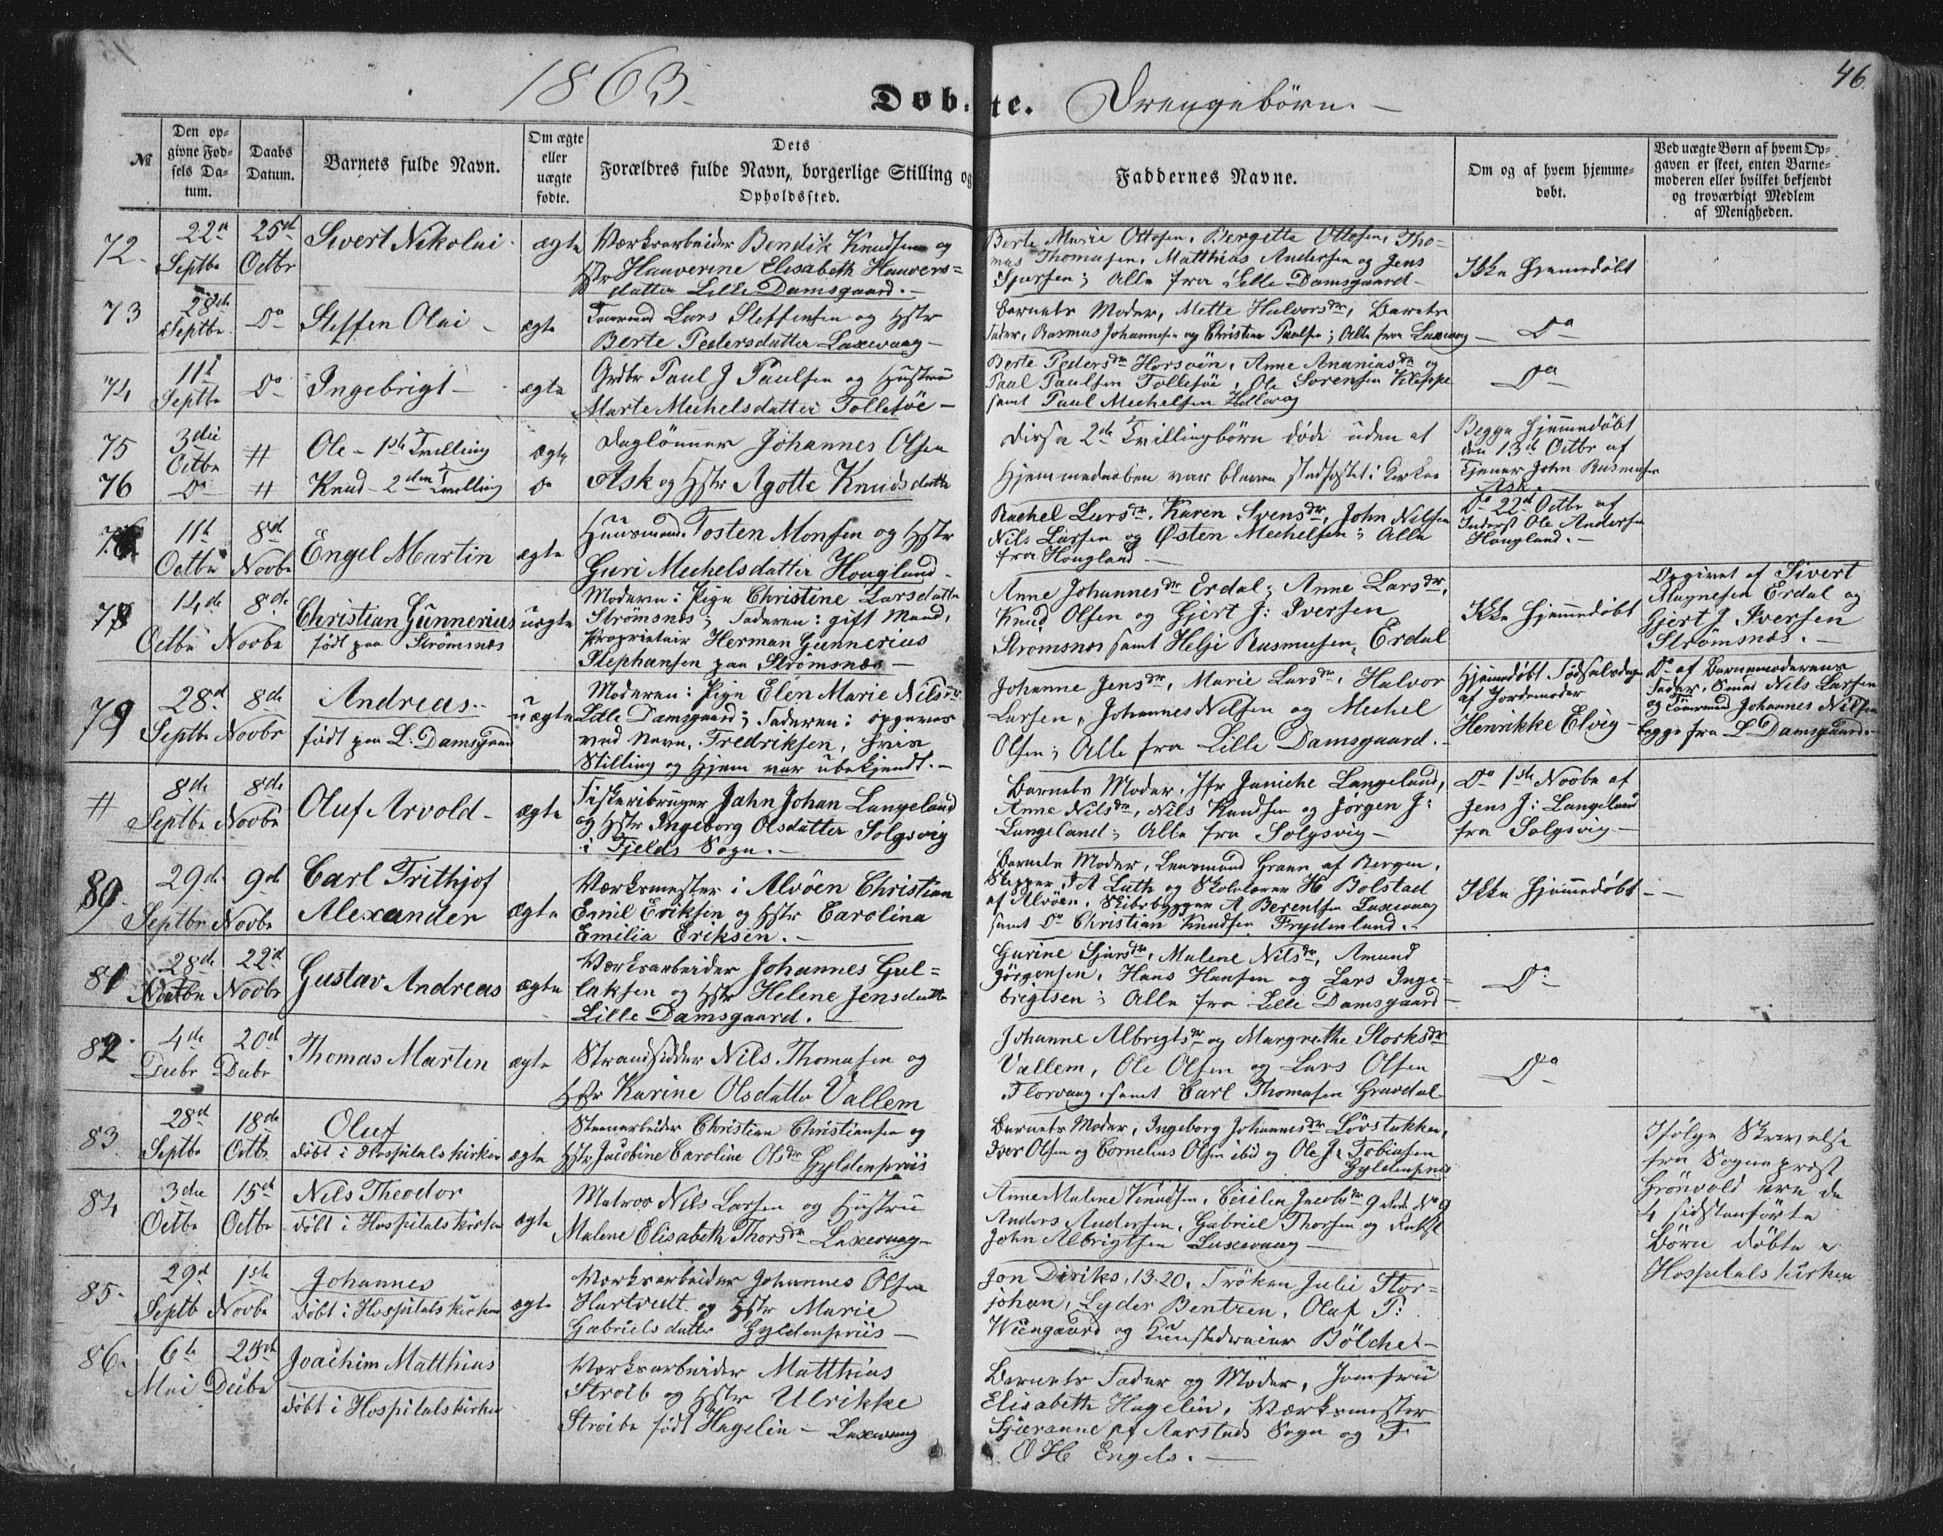 1863.
Døbte. Drengebørn.
46.
№
Den opgivne Fødsels Datum.
Daabs Datum.
Barnets fulde Navn.
Om ægte eller uægte fødte.
Dets Forældres fulde Navn, borgerlige Stilling og Opholdssted.
Faddernes Navne.
Om og af hvem hjemmedøbt.
Ved uægte Børn af hvem Opgaven er skeet, enten Barnemoderen eller hvilket bekjendt og troværdigt Medlem af Menigheden.
72.
22d Septbr
25d Octbr
Sivert Nikolai.
ægte
Værksarbeider Bendik Knudsen og
Hstr Hauverine Elisabeth Hauvers=
datter Lille Damsgaard.
Berte Marie Ottosen, Bergitte Ottosen, Tho-
mas Thomasen, Matthias Andersen og Jens
Sjursen; Alle fra Lille Damsgaard
Ikke Hjemmedøbt
73
28de Septbr.
Do
Steffen Olai
ægte
Lars Steffensen og Hstr
Berte Pedersdatter Laxevaag
Barnets Moder, Mette Halvorsdr, Barnets
Fader, Rasmus Johannesen og Christian Paulsen; Alle fra Laxevaag
Do
74
11te Septbr
Do
Ingebrigt
ægte
Grdbr Paul J Paulsen og Hustru
Marte Mechelsdatter Tollesøe
Berte Pedersdr Horsøen, Anne Ananiasdr og
Paul Paulsen Tollesøe, Ole Sørensen Kleppe
samt Paul Mechelsen
Do
75
3die Octbr
"
Ole - 1ste Tvilling
ægte
Daglønner Johannes Olsen
Disse 2de Tvillingbørn døde uden at
Begge Hjemmedøbt
den 13d Octbr af
Tjener John Rasmusen
Ask.
76
Do
"
Knud - 2den Tvilling
do
Ask og Hstr Agotte Knudsdatter
Hjemmedaaben var bleven stadfæstet i Kirken
11te Octbr
8de Novbr
Engel Martin
ægte
Huusmand Tosten Monsen og Hstr
Guri Mechelsdatter Hougland
Rachel Larsdr, Karen Svensdr, John Nilsen
Nils Larsen og Østen Mechelsen; Alle
fra Hougland
Do 22d Octbr af
Inderst Ole Andersen
Hougland.
78
14de Octbr
8de Novbr
Christian Gunnerius
født paa Strømsnæs
uægte
Moderen: Pige Christine Larsdatter
Strømsnæs; Faderen: gift Mand,
Proprietair Herman Gunnerius
Stephansen paa Strømsnæs
Anne Johannesdr Erdal; Anne Larsdr,
Knud Olsen og Gjert J: Iversen
Strømsnæs samt Helje Rasmusen, Erdal
Ikke Hjemmedøbt
Opgivet af Sivert
Magnesen Erdal og
Gjert J Iversen
Strømsnæs.
79
28d Septbr
8de Novbr
Andreas.
født paa L. Damsgaard
uægte
Moderen: Pige Elen Marie Nilsdr
Lille Damsgaard; Faderen: opgaves
ved Navn, Fredriksen, hvis
Stilling og Hjem var ubekjendt.
Johanne Jensdr, Marie Larsdr, Halvor
Larsen, Johannes Nilsen og Mechel
Olsen; Alle fra Lille Damsgaard.
Hjemmedøbt Fødselsdagen
af Jordemoder
Henrikke Elvig
Do af Barnemoderens
Fader, Smed Nils Larsen
og Johannes Nilsen
begge fra L Damsgaard.
"
8de Septbr
8de Novbr
Oluf Arvold
ægte
Fiskeribruger Jahn Johan Langeland
og Hstr Ingeborg Olsdatter Solgsvig
i Fjelds Sogn.
Barnets Moder, Jfr Janiche Langeland,
Anne Nilsdr, Nils Knudsen og Jørgen J:
Langeland; Alle fra Solgsvig
Do 1ste Novbr af
Jens J: Langeland
fra Solgsvig
80.
29de Septbr
9de Novbr
Carl Frithjof
Alexander
ægte
Værksmester i Alvøen Christian
Emil Eriksen og Hstr Carolina
Emilia Eriksen.
Barnets Moder, Graan af Bergen,
Skipper J A Luth og Skolelærer H Bolstad
af Alvøen, Skibsbygger A Berentsen Laxevaag
samt Do Christian Knudsen Frydenlund.
Ikke Hjemmedøbt
81
28de
22d Novbr
Gustav Andreas
ægte
Værksarbeider Johannes Gul=
laksen og Hstr Helene Jensdatter
Lille Damsgaard.
Gurine Sjursdr, Malene Nilsdr, Amund
Jørgensen, Hans Hansen og Lars Inge-
brigtsen; Alle fra Lille Damsgaard
Do
82
4de Decbr
20d Decbr
Thomas Marten
ægte
Strandsidder Nils Thomasen og
Hstr Karine Olsdatter Vallem
Johanne Albrigtsdr og Margrethe Storksdr
Vallem, Ole Olsen og Lars Olsen
Florvaag, samt Carl Thomasen Gravdal
Do
83.
28d Septbr
18de Octbr
Oluf
døbt i Hospitalskirken
ægte
Steenarbeider Christian Christiansen og
Hstr Jacobine Caroline Olsdr Gyldenpriis
Barnets Moder, Ingeborg Johannesdr Løvstakken,
Iver Olsen og Cornelius Olsen ibid og Ole J: Tobiasen
Gyldenpriis
Ifølge Skrivelse
fra Sognepræst
Grönvold ere de
4 sidstanførte
Børn døbte i
Hospitalskirken
84
3die Octbr
15d Octbr
Nils Theodor
døbt i Hospitalskirken
ægte
Matros Nils Larsen og Hustru
Malene Elisabeth Thorsdr Laxevaag
Anne Malene Knudsen, Cecilia Jacobsdr 9 Rode No 9
Anders Andersen, Gabriel Thorsen og
John Albrigtsen Laxevaag
85.
29d Septbr
1ste Novbr
Johannes
døbt i Hospitalskirken
ægte
Værksarbeider Johannes Olsen
Hartvedt og Hstr Marie
Gabrielsdatter Gyldenpriis
Jon Diriks, 13.20, Frøken Julie Stor-
johan, Lyder Bentzen, Oluf P:
Wiengaard og Kunstdreier Bölcher
86.
6te Mai
25de Decbr
Joachim Matthias
døbt i Hospitalskirken
Værksarbeider Matthias
Stroib og Hstr Ulrikke
Stroibe født Hagelin - Laxevaag
Barnets Fader og Moder, Jomfru
Elisabeth Hagelin, Værksmester
af Aarstads Sogn og F
O H Engels.